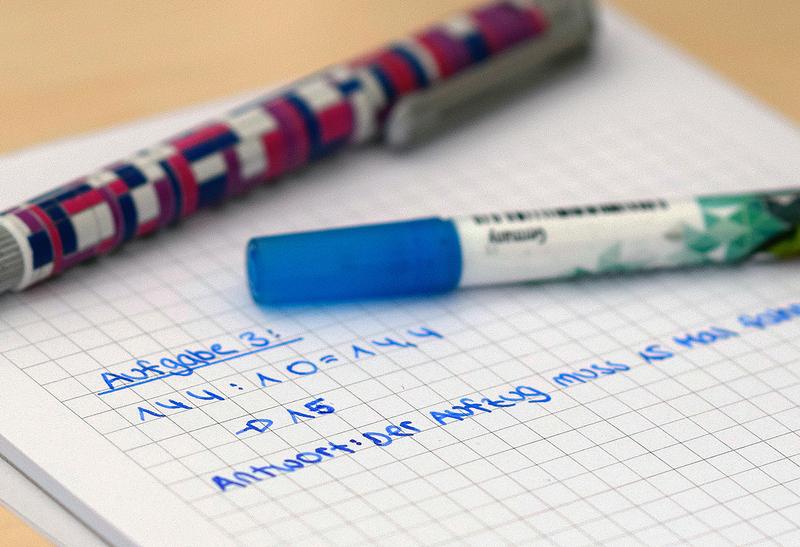 Germany
Aufgabe 3:
144 : 10 = 14,4
→ 15
Antwort: Der Aufzug muss 15 Mal